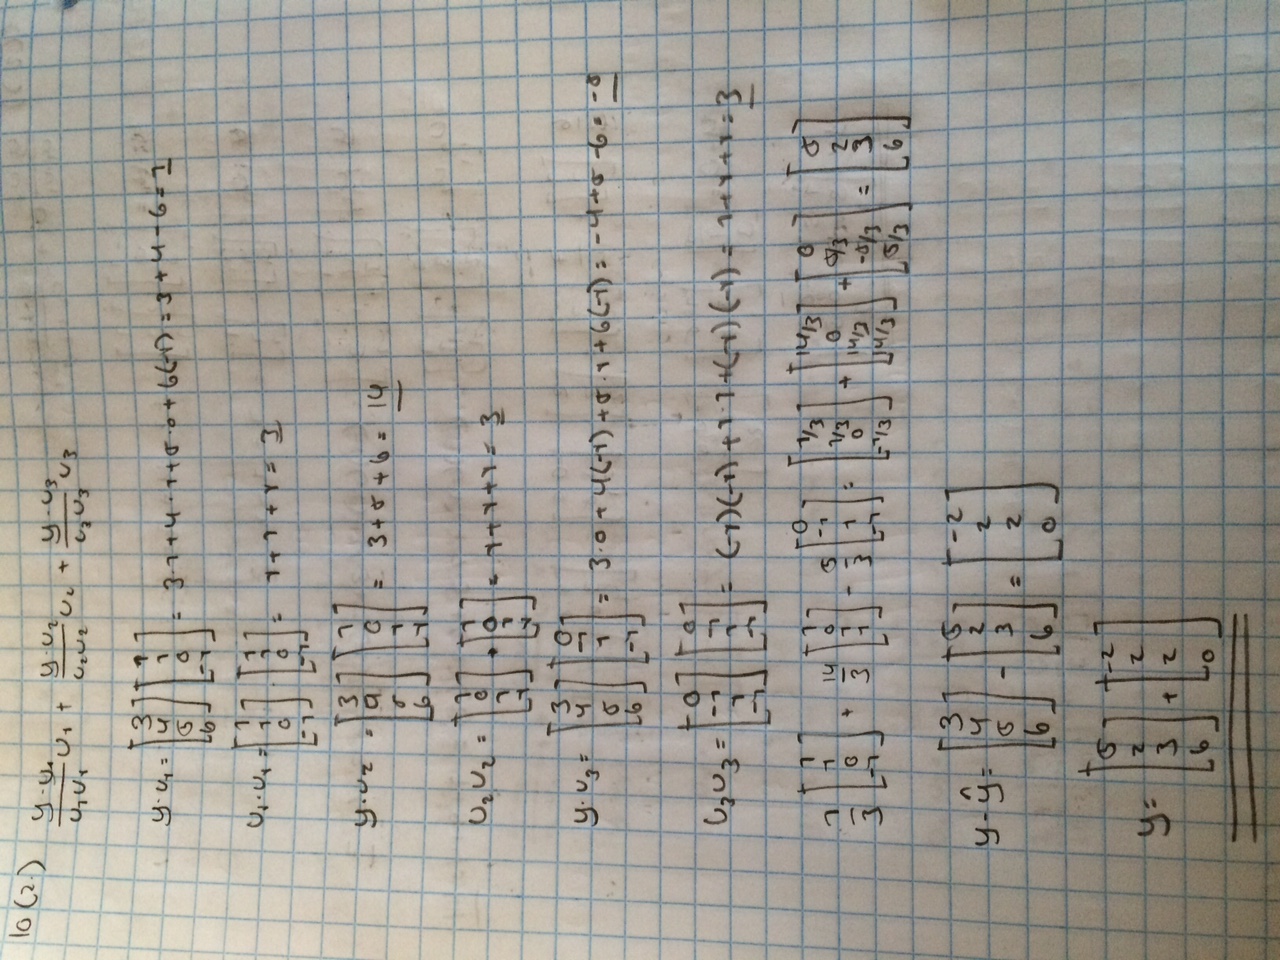 10(2.)
y·y₁/u₁u₁ u₁ + y·u₂/u₂u₂ u₂ + y·u₃/u₃u₃ u₃
y·u₁ = [3 4 5 6] [1 1 0 -1] = 3·1+4·1+5·0+6(-1) = 3+4-6 = 1
u₁·u₁ = [1 1 0 -1] · [1 1 0 -1] = 1+1+1 = 3
y·u₂ = [3 4 5 6] [1 0 1 1] = 3+5+6 = 14
u₂u₂ = [1 0 1 1] · [1 0 1 1] = 1+1+1 = 3
y·u₃ = [3 4 5 6] [0 -1 1 -1] = 3·0+4(-1)+5·1+6(-1) = -4+5-6 = -5
u₃u₃ = [0 -1 1 -1] [0 -1 1 -1] = (-1)(-1)+1·1+(-1)(-1) = 1+1+1 = 3
1/3 [1 1 0 -1] + 14/3 [1 0 1 1] - 5/3 [0 -1 1 -1] = [1/3 1/3 0 -1/3] + [14/3 0 14/3 14/3] + [0 5/3 -5/3 5/3] = [5 2 3 6]
y-ŷ = [3 4 5 6] - [5 2 3 6] = [-2 2 2 0]
y = [5 2 3 6] + [-2 2 2 0]